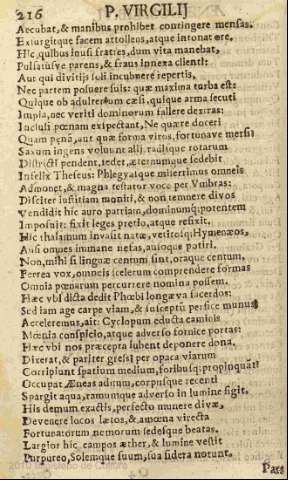 216 P. VIRGILIJ
Accubat, & manibus prohibet contingere mensas.
Exiurgitque facem attollens, atque intonat ore.
Hic, quibus inuisi fratres, dum vita manebat,
Pulsatusve parens, & fraus innexa clienti:
Aut qui divitijs soli incubuere repertis,
Nec partem posuere suis: quæ maxima turba est:
Quique ob adulterium cæsi, quique arma secuti
Impia, nec veriti dominorum fallere dextras:
Inclusi pœnam expectant, Ne quære doceri
Quam pœnā, aut quæ forma viros, fortunave mersit
Saxum ingens voluunt alij, radijsque rotarum
Districti pendent, sedet, æternumque sedebit
Infelix Theseus: Phlegyasque miserrimus omneis
Admonet, & magna testatur voce per Vmbras:
Discite iustitiam moniti, & non temnere divos
Vendidit hic auro patriam, dominumq; potentem
Imposuit: fixit leges pretio, atque refixit.
Hic thalamum invasit natæ, vetitosq; Hymenæos,
Ausi omnes immane nefas, ausoque potiti.
Non, mihi si linguæ centum sint, oraque centum,
Ferrea vox, omneis scelerum comprendere formas
Omnia pœnarum percurrere nomina possem.
Hæc vbi dicta dedit Phœbi longæva sacerdos:
Sed iam age carpe viam, & susceptū perfice munus
Acceleremus, ait: Cyclopum educta caminis
Mœnia conspicio, atque adverso fornice portas:
Hæc vbi nos præcepta iubent deponere dona.
Dixerat, & pariter gressi per opaca viarum
Corripiunt spatium medium, foribusq; propinquāt
Occupat Æneas aditum, corpusque recenti
Spargit aqua, ramumque adverso in lumine figit.
His demum exactis, perfecto munere divæ,
Devenere locos lætos, & amœna virecta
Fortunatorum nemorum sedesque beatas.
Largior hic campos æther, & lumine vestit
Purpureo, Solemque suum, sua sidera norunt.
Pars